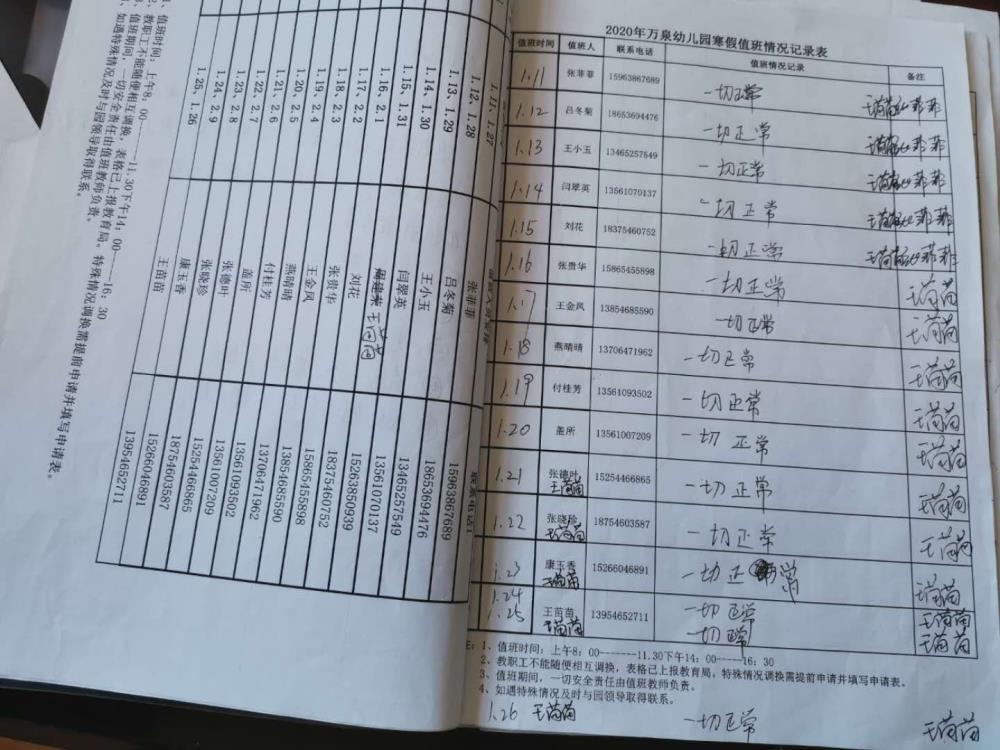 2020年万泉幼儿园寒假值班情况记录表
值班时间 值班人 联系电话 值班情况记录 备注
1.11 张菲菲 15963867689 一切正常 王苗苗 张菲菲
1.12 吕冬菊 18653694476 一切正常 王苗苗 张菲菲
1.13 王小玉 13465257549 一切正常 王苗苗 张菲菲
1.14 闫翠英 13561070137 一切正常 王苗苗 张菲菲
1.15 刘花 18375460752 一切正常 王苗苗 张菲菲
1.16 张贵华 15865455898 一切正常 王苗苗
1.17 王金凤 13854685590 一切正常 王苗苗
1.18 燕晴晴 13706471962 一切正常 王苗苗
1.19 付桂芳 13561093502 一切正常 王苗苗
1.20 盖所 13561007209 一切正常 王苗苗
1.21 张德叶 王苗苗 15254466865 一切正常 王苗苗
1.22 张晓珍 王苗苗 18754603587 一切正常 王苗苗
1.23 康玉香 王苗苗 15266046891 一切正常 王苗苗
1.24 王苗苗 13954652711 一切正常 王苗苗
1.25 王苗苗 一切正常 王苗苗
1、值班时间:上午8:00-------11.30下午14:00-----16:30
2、教职工不能随便相互调换,表格已上报教育局。特殊情况调换需提前申请并填写申请表。
3、值班期间,一切安全责任由值班教师负责。
4、如遇特殊情况及时与园领导取得联系。
1.26 王苗苗 一切正常 王苗苗
联系电话
1.11、1.27 张菲菲 15963867689
1.12、1.28 吕冬菊 18653694476
1.13、1.29 王小玉 13465257549
1.14、1.30 闫翠英 13561070137
1.15、1.31 周建荣 王苗苗 15263850939
1.16、2.1 刘花 18375460752
1.17、2.2 张贵华 15865455898
1.18、2.3 王金凤 13854685590
1.19、2.4 燕晴晴 13706471962
1.20、2.5 付桂芳 13561093502
1.21、2.6 盖所 13561007209
1.22、2.7 张德叶 15254466865
1.23、2.8 张晓珍 18754603587
1.24、2.9 康玉香 15266046891
1.25、1.26 王苗苗 13954652711
1、值班时间:上午8:00-------11.30下午14:00-----16:30
2、教职工不能随便相互调换,表格已上报教育局。特殊情况调换需提前申请并填写申请表。
3、值班期间,一切安全责任由值班教师负责。
如遇特殊情况及时与园领导取得联系。